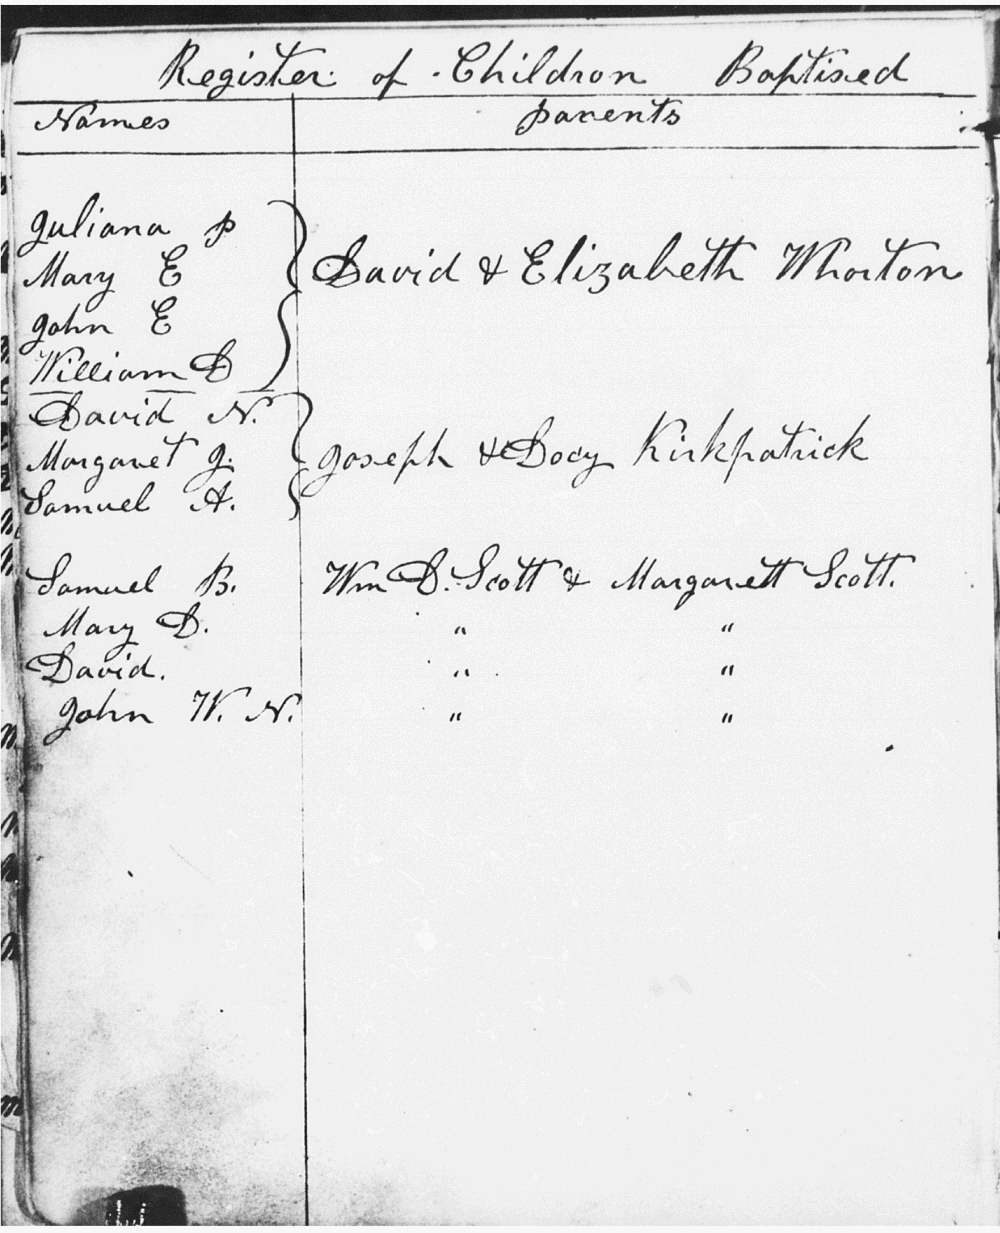 Register of Children Baptised
Names parents
Juliana P
Mary E
David & Elizabeth Whorton
John E
William D
David N.
Margaret J.
Joseph & Docy Kirkpatrick
Samuel A.
Samuel B. Wm D. Scott & Margarett Scott.
Mary D. " "
David. " "
John W. N. " "